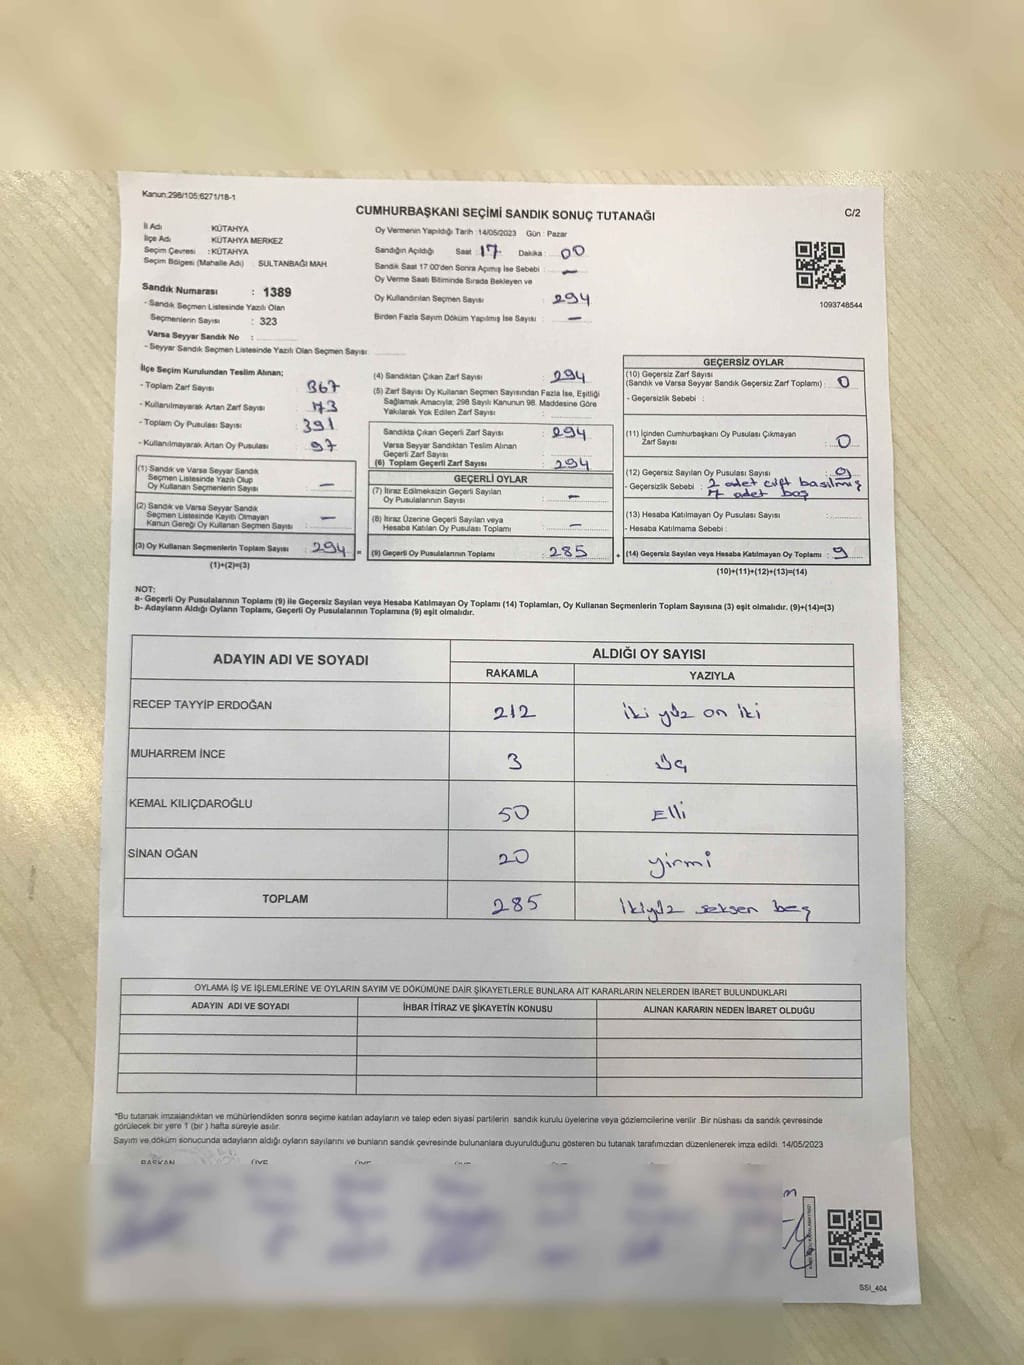 Kanun:298/105;6271/18-1
CUMHURBAŞKANI SEÇİMİ SANDIK SONUÇ TUTANAĞI
C/2
İl Adı KÜTAHYA
İlçe Adı KÜTAHYA MERKEZ
Seçim Çevresi : KÜTAHYA
Seçim Bölgesi (Mahalle Adı) SULTANBAĞI MAH
Sandık Numarası : 1389
- Sandık Seçmen Listesinde Yazılı Olan
Seçmenlerin Sayısı : 323
Varsa Seyyar Sandık No :
- Seyyar Sandık Seçmen Listesinde Yazılı Olan Seçmen Sayısı
Oy Vermenin Yapıldığı Tarih :14/05/2023 Gün : Pazar
Sandığın Açıldığı Saat : 17 Dakika : 00
Sandık Saat 17.00'den Sonra Açımış İse Sebebi : —
Oy Verme Saati Bitiminde Sırada Bekleyen ve
Oy Kullandırılan Seçmen Sayısı : 294
Birden Fazla Sayım Döküm Yapılmış İse Sayısı : —
1093748544
İlçe Seçim Kurulundan Teslim Alınan;
- Toplam Zarf Sayısı : 367
- Kullanılmayarak Artan Zarf Sayısı : 73
- Toplam Oy Pusulası Sayısı : 391
- Kullanılmayarak Artan Oy Pusulası : 97
(1) Sandık ve Varsa Seyyar Sandık
Seçmen Listesinde Yazılı Olup
Oy Kullanan Seçmenlerin Sayısı : —
(2) Sandık ve Varsa Seyyar Sandık
Seçmen Listesinde Kayıtlı Olmayan
Kanun Gereği Oy Kullanan Seçmen Sayısı : —
(3) Oy Kullanan Seçmenlerin Toplam Sayısı : 294 =
(1)+(2)=(3)
(4) Sandıktan Çıkan Zarf Sayısı : 294
(5) Zarf Sayısı Oy Kullanan Seçmen Sayısından Fazla İse, Eşitliği
Sağlamak Amacıyla; 298 Sayılı Kanunun 98. Maddesine Göre
Yakılarak Yok Edilen Zarf Sayısı :
Sandıkta Çıkan Geçerli Zarf Sayısı : 294
Varsa Seyyar Sandıktan Teslim Alınan
Geçerli Zarf Sayısı :
(6) Toplam Geçerli Zarf Sayısı : 294
GEÇERLİ OYLAR
(7) İtiraz Edilmeksizin Geçerli Sayılan
Oy Pusulalarının Sayısı : —
(8) İtiraz Üzerine Geçerli Sayılan veya
Hesaba Katılan Oy Pusulası Toplamı : —
(9) Geçerli Oy Pusulalarının Toplamı : 285 +
GEÇERSİZ OYLAR
(10) Geçersiz Zarf Sayısı
(Sandık ve Varsa Seyyar Sandık Geçersiz Zarf Toplamı) : 0
- Geçersizlik Sebebi :
(11) İçinden Cumhurbaşkanı Oy Pusulası Çıkmayan
Zarf Sayısı : 0
(12) Geçersiz Sayılan Oy Pusulası Sayısı : 9
- Geçersizlik Sebebi : 2 adet çift basılmış
7 adet boş
(13) Hesaba Katılmayan Oy Pusulası Sayısı :
- Hesaba Katılmama Sebebi :
(14) Geçersiz Sayılan veya Hesaba Katılmayan Oy Toplamı : 9
(10)+(11)+(12)+(13)=(14)
NOT:
a- Geçerli Oy Pusulalarının Toplamı (9) ile Geçersiz Sayılan veya Hesaba Katılmayan Oy Toplamı (14) Toplamları, Oy Kullanan Seçmenlerin Toplam Sayısına (3) eşit olmalıdır. (9)+(14)=(3)
b- Adayların Aldığı Oyların Toplamı, Geçerli Oy Pusulalarının Toplamına (9) eşit olmalıdır.
ADAYIN ADI VE SOYADI
ALDIĞI OY SAYISI
RAKAMLA YAZIYLA
RECEP TAYYİP ERDOĞAN 212 iki yüz on iki
MUHARREM İNCE 3 üç
KEMAL KILIÇDAROĞLU 50 Elli
SİNAN OĞAN 20 yirmi
TOPLAM 285 ikiyüz seksen beş
OYLAMA İŞ VE İŞLEMLERİNE VE OYLARIN SAYIM VE DÖKÜMÜNE DAİR ŞİKAYETLERLE BUNLARA AİT KARARLARIN NELERDEN İBARET BULUNDUKLARI
ADAYIN ADI VE SOYADI İHBAR İTİRAZ VE ŞİKAYETİN KONUSU ALINAN KARARIN NEDEN İBARET OLDUĞU
*Bu tutanak imzalandıktan ve mühürlendikten sonra seçime katılan adayların ve talep eden siyasi partilerin sandık kurulu üyelerine veya gözlemcilerine verilir. Bir nüshası da sandık çevresinde
görülecek bir yere 1 (bir) hafta süreyle asılır.
Sayım ve döküm sonucunda adayların aldığı oyların sayılarını ve bunların sandık çevresinde bulunanlara duyurulduğunu gösteren bu tutanak tarafımızdan düzenlenerek imza edildi. 14/05/2023
BAŞKAN ÜYE ÜYE
SSI_404